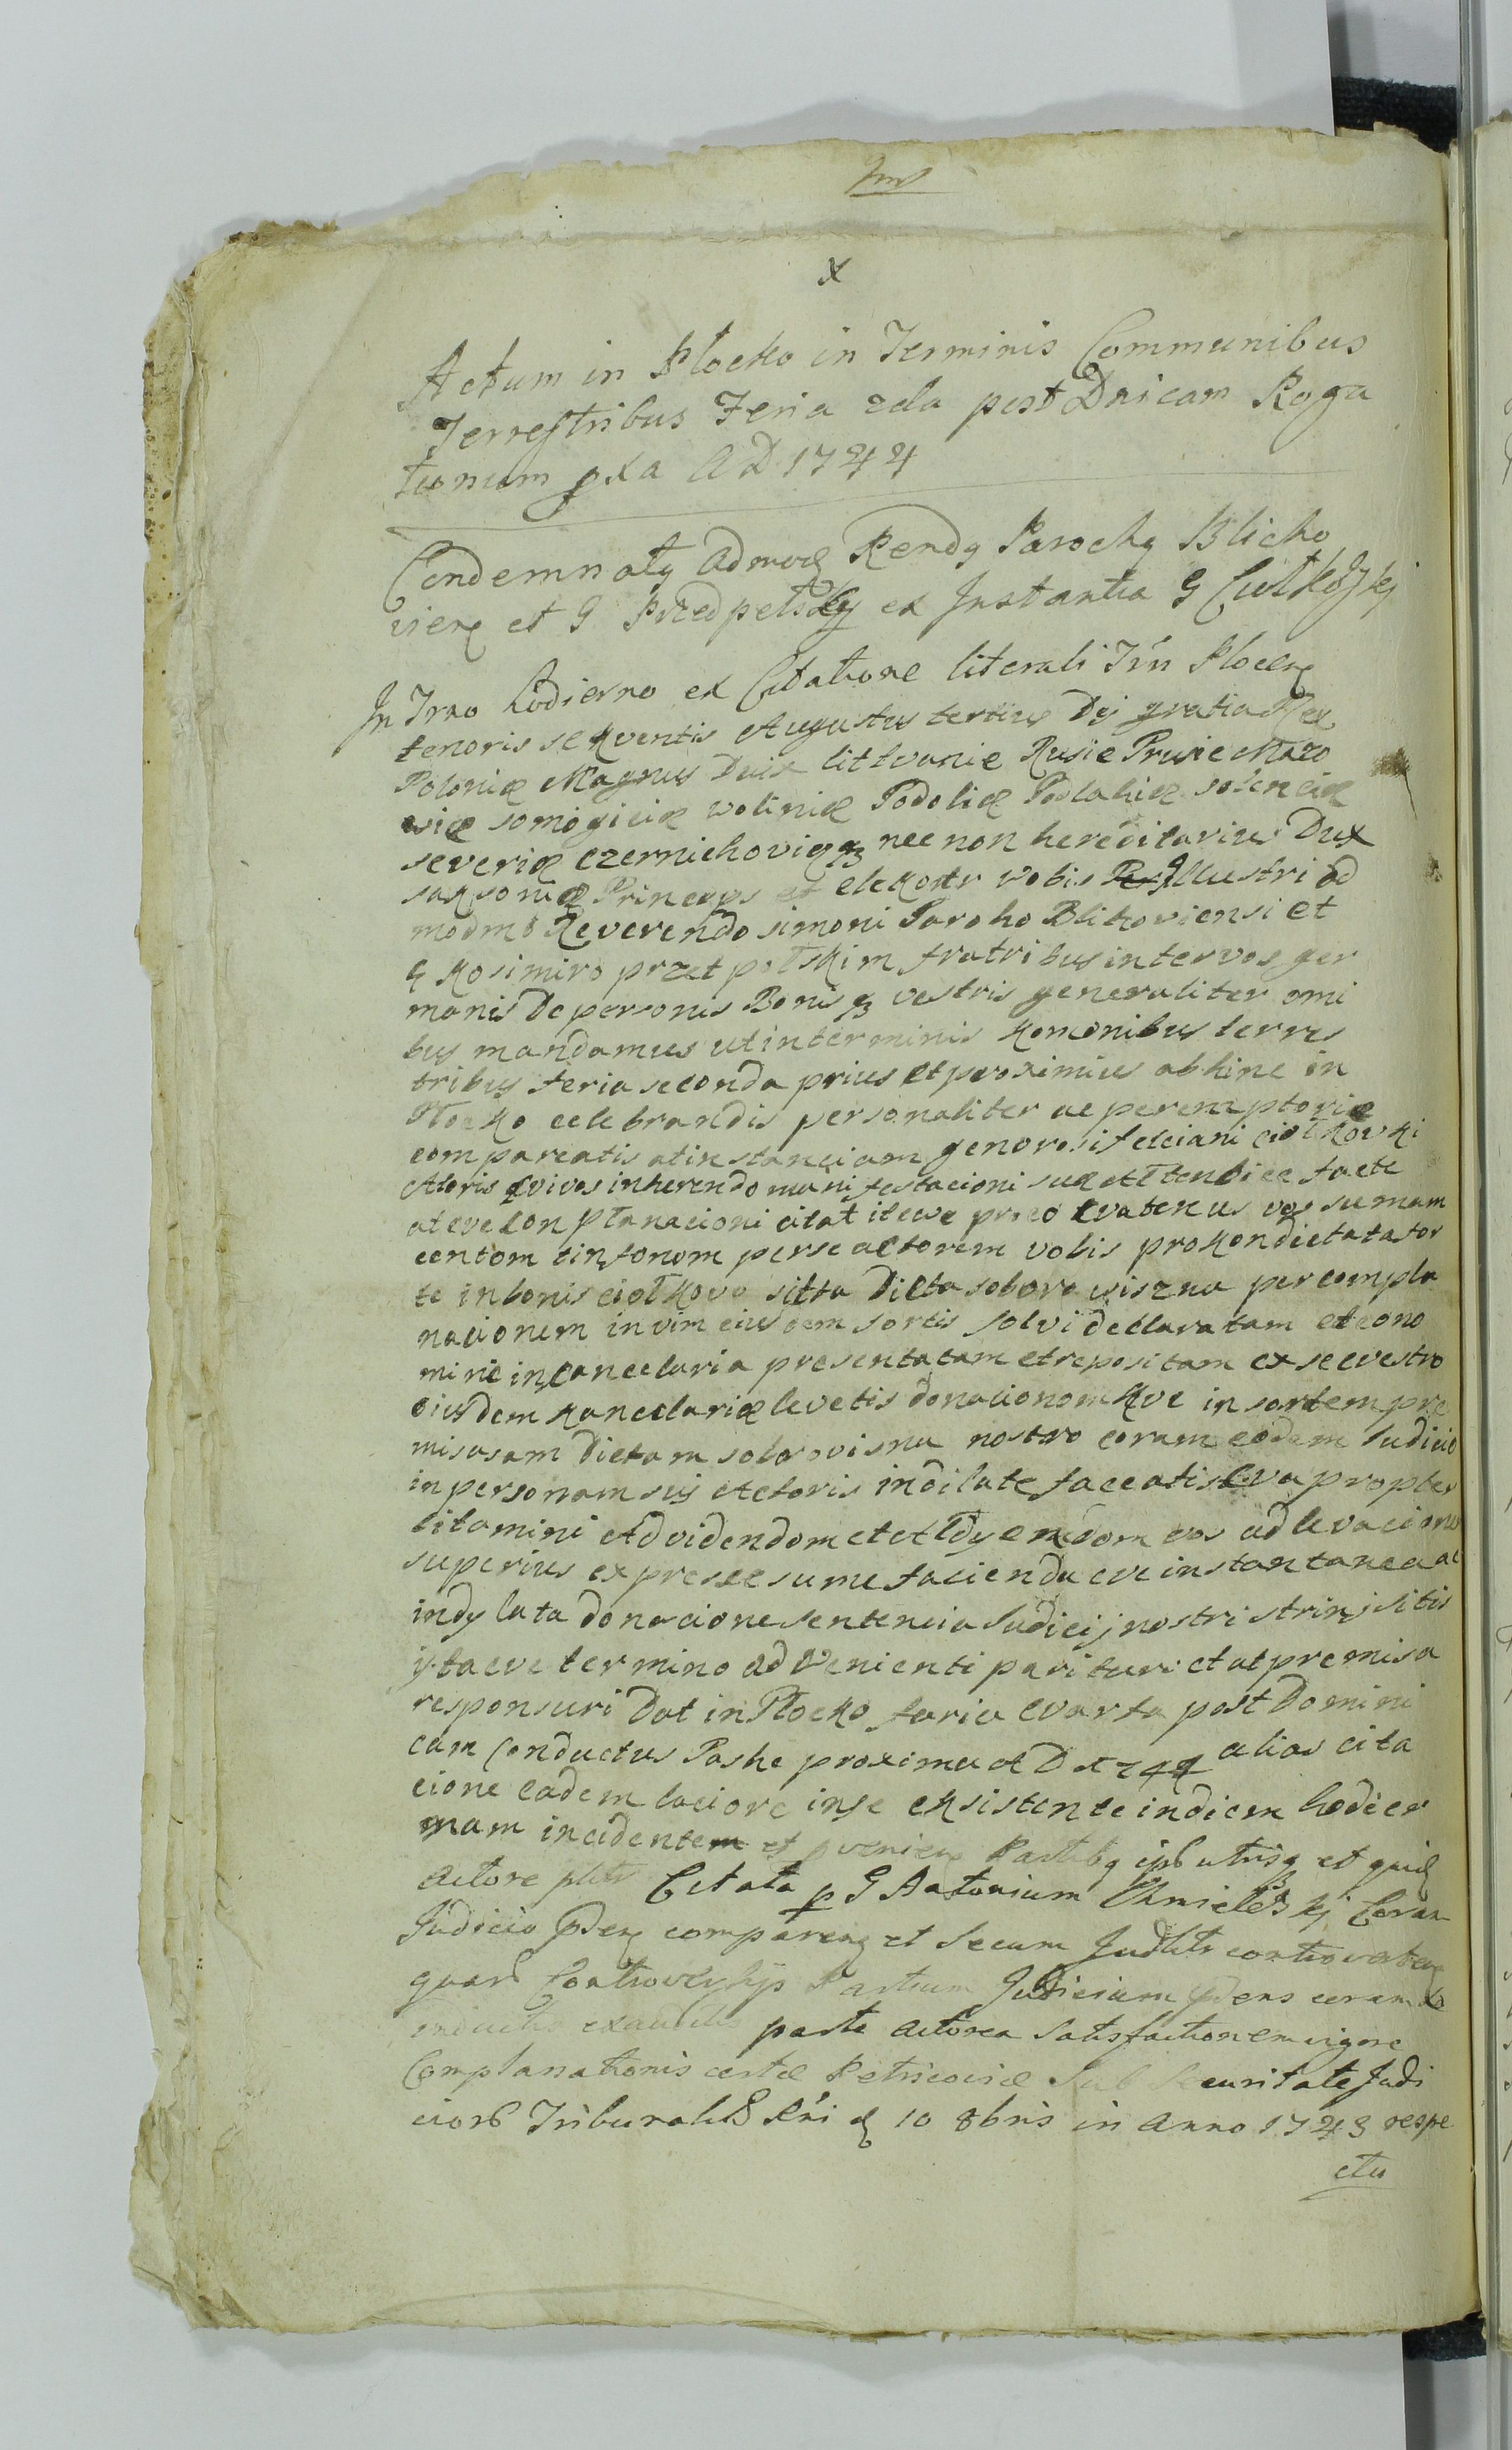 x
Actum in Plocko in Terminis Communibus
Terrestribus Feria 2da post Dnicam Roga
tionum pxa AD 1744
Condemnatg Admod Rendg Parochg Blicho
vienẽ et G Przedpelskij ex Instantia G Ciutkoskj
In Trno hodierno ex Citatione literali Trri Plocen
tenoris sekventis Augustus tertius Dej gratia Rex
Poloniæ Magnus Duix littvanie Rusie Prusie Mazo
wiæ somogiciæ woliniæ Podoliæ Podlahiæ solenciæ
severiæ czernichoviæq3 nec non hereditarius Dux
saksoniæ Princeps et elektor vobis Illustri ad
modmo Reverendo simoni Paroho Blikoviensi et
G kosimiro przetpołskim fratribus inter vos ger
manis De personis Bonisq3 vestris generaliter omi
bus mandamus ut in terminis komonibus terres
tribus feria seconda prius et proximius abhinc in
Płocko celebrandis personaliter ac peremptorie
compareatis at instanciam generosi felciani ciołkovski
Actoris qvivos inherendo manifestacioni suæ attendice facte
ateve Conplanacioni citat itewe preo Cvatenus vos sumam
centom tinfonom perse actorem vobis prokondictatator
te in bonis ciołkovo sitta Dicta soborowiszna per compla
nacionem in vim eiusdem sortis solvi declaratam et eono
mine in cancelaria presentatam et repositam ex seevestro
eiusdem kancelariæ levetis donacionomkve in sortem pre
misasam Dictam soborovisna nostro coram eodem Iudicio
in personam sui Actoris indilate faceatis Cva propter
litamini Ad videndom et at Idyendom vos ad levacione
superius expresse sume facienda eve instantanea ac
indylata donacione sentencia Iudicij nostri strinsitis
ytaeve termino ad venienti parituri et at premisa
responsuri Dat in Płocko feria Cvarta post Domini
cam Conductus Pashe proxima A D 1744 alias cita
cione eadem laciore inse eksistente in diem hodier
nam incidentem et pveniene Partibg ipś utrisq et quid
Actore ptitr Citata p G Antonium Chmielẽskj Coram
Judicio pdenẽ comparenẽ et secum Judlitr controverten
quarš Controversijs Partium Judicium pdens coram se
inductis exauditis parte actorea satisfactionem vigore
Complanationis certæ Petricoviæ sub securitate Judi
ciorš Tribunalis Rni d 10 8bris in Anno 1743 respe
ctu